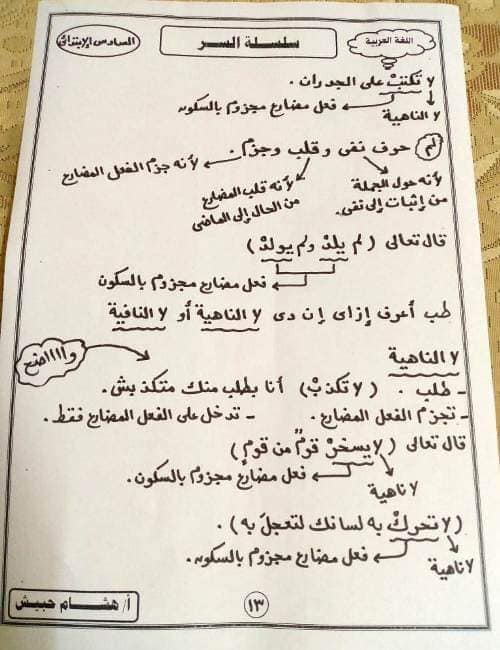 اللغة العربية
سلسلة السر
السادس الابتدائى
لا تكتبْ على الجدران .
لا الناهية
فعل مضارع مجزوم بالسكون
لم حرف نفى وقلب وجزم .
لأنه جزم الفعل المضارع
لأنه حول الجملة من إثبات إلى نفى .
لأنه قلب المضارع من الحال إلى الماضى
قال تعالى ( لم يلدْ ولم يولدْ )
فعل مضارع مجزوم بالسكون
طب أعرف إزاى إن دى لا الناهية أو لا النافية
وااااضح
لا الناهية
- طلب . ( لا تكذبْ ) أنا بطلب منك متكذبش .
- تجزم الفعل المضارع . - تدخل على الفعل المضارع فقط .
قال تعالى ( لا يسخرْ قومٌ من قومٍ )
لا ناهية
فعل مضارع مجزوم بالسكون .
( لا تحركْ به لسانك لتعجلَ به ) .
لا ناهية
فعل مضارع مجزوم بالسكون .
١٣
أ/ هشام حبيش